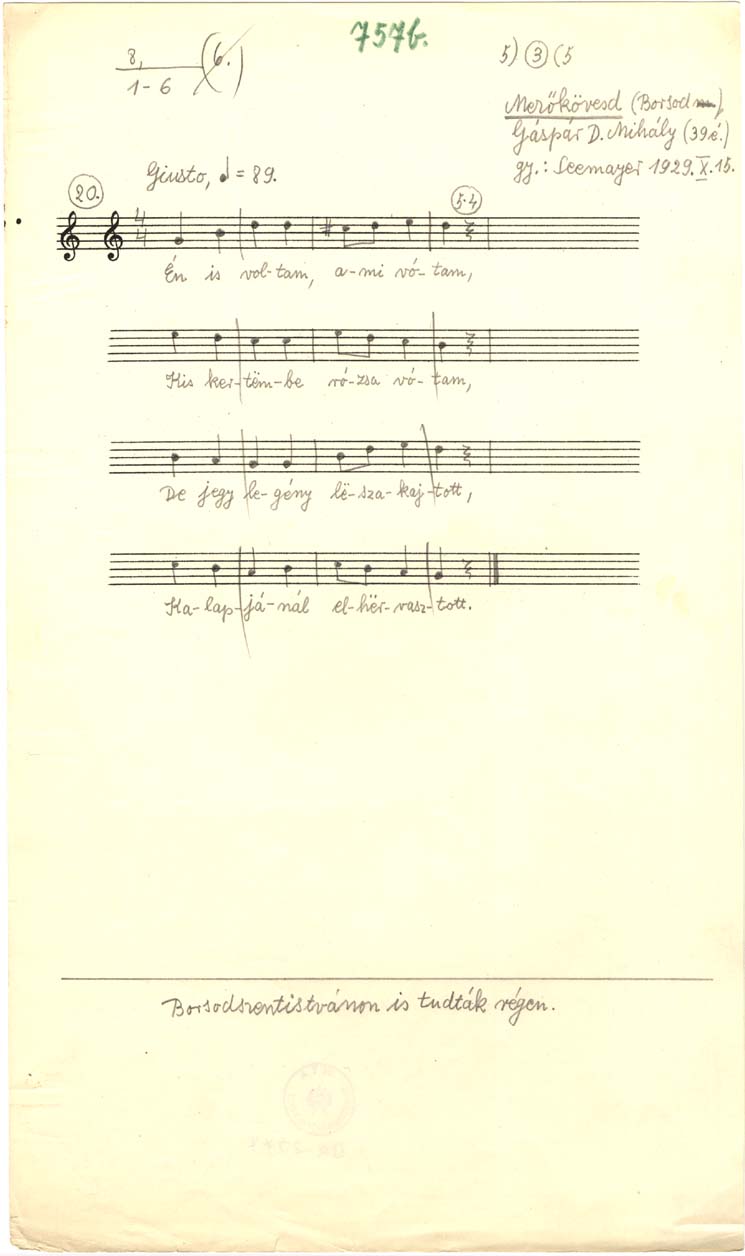 757b.
8,
1-6
(6.)
5) 3 (5
Mezőkövesd (Borsod m.)
Gáspár D. Mihály (39é.)
gy.: Seemayer 1929. X. 15.
Giusto, ♩ = 89.
20.
5·4
4
4
Én is vol-tam, a-mi vó-tam,
Kis ker-tëm-be ró-zsa vó-tam,
De jegy le-gény lë-sza-kaj-tott,
Ka-lap-já-nál el-hër-vasz-tott.
Borsodszentistvánon is tudták régen.